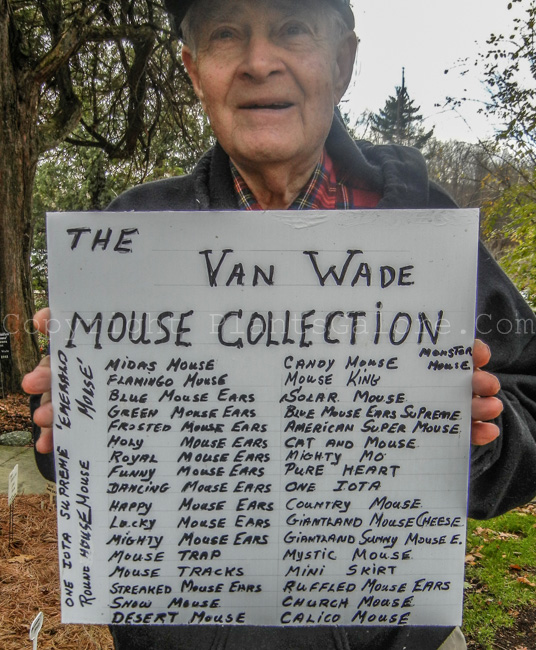 THE
VAN WADE
MOUSE COLLECTION
MIDAS MOUSE
FLAMINGO MOUSE
BLUE MOUSE EARS
GREEN MOUSE EARS
FROSTED MOUSE EARS
HOLY MOUSE EARS
ROYAL MOUSE EARS
FUNNY MOUSE EARS
DANCING MOUSE EARS
HAPPY MOUSE EARS
LUCKY MOUSE EARS
MIGHTY MOUSE EARS
MOUSE TRAP
MOUSE TRACKS
STREAKED MOUSE EARS
SNOW MOUSE
DESERT MOUSE
CANDY MOUSE
MOUSE KING
SOLAR MOUSE
BLUE MOUSE EARS SUPREME
AMERICAN SUPER MOUSE
CAT AND MOUSE
MIGHTY MO
PURE HEART
ONE IOTA
COUNTRY MOUSE
GIANTLAND MOUSE CHEESE
GIANTLAND SUNNY MOUSE E.
MYSTIC MOUSE
MINI SKIRT
RUFFLED MOUSE EARS
CHURCH MOUSE
CALICO MOUSE
MONSTER
MOUSE
ONE IOTA SUPREME 'EMERALD
MOUSE'
ROUND HOUSE MOUSE
Copyright PlantsGalore.Com